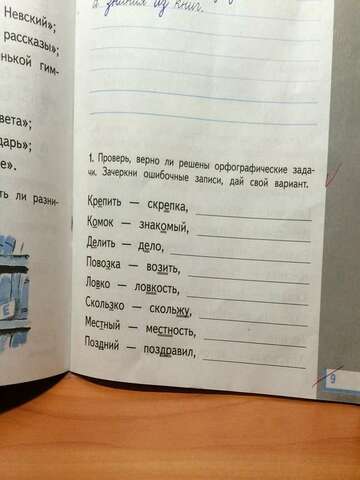 Невский»;
рассказы»;
нькой гим-
вета»;
дарь»;
е».
ть ли разни-
Е
знания из книг.
1. Проверь, верно ли решены орфографические зада-
чи. Зачеркни ошибочные записи, дай свой вариант.
Крепить — скрепка,
Комок — знакомый,
Делить — дело,
Повозка — возить,
Ловко — ловкость,
Скользко — скольжу,
Местный — местность,
Поздний — поздравил,
9